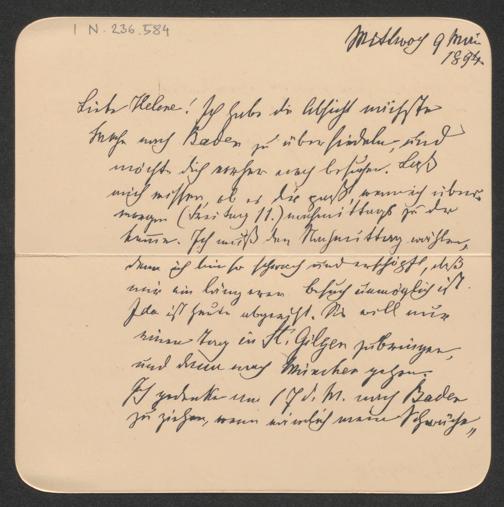 I N. 236.584
Mittwoch 9 Mai
1894.
Liebe Helene! Ich habe die Absicht nächste
Woche nach Baden zu übersiedeln, und
möchte dich vorher noch besuchen. Laß
mich wissen, ob es dir paßt, wenn ich über-
morgen (Freitag 11.) nachmittags zu dir
komme. Ich muß den Nachmittag wählen,
denn ich bin so schwach und erschöpft, daß
mir ein längerer Besuch unmöglich ist.
Ida ist heute abgereist. Sie will nur
einen Tag in St. Gilgen zubringen,
und dann nach München gehen.
Ich gedenke am 17 d. M. nach Baden
zu ziehen, wenn nämlich meine Schwäche